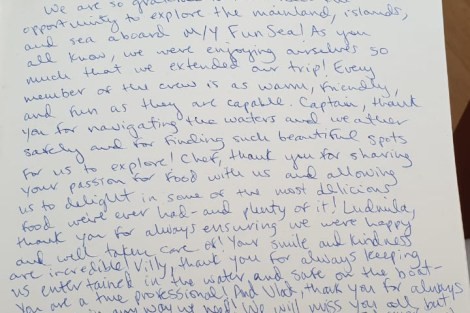 We are so grateful
opportunity to explore the mainland, islands,
and sea aboard M/Y FunSea! As you
all know, we were enjoying ourselves so
much that we extended our trip! Every
member of the crew is as warm, friendly,
and fun as they are capable. Captain, thank
you for navigating the waters and weather
safely and for finding such beautiful spots
for us to explore! Chef, thank you for sharing
your passion for food with us and allowing
us to delight in some of the most delicious
food we've ever had - and plenty of it! Ludmila,
thank you for always ensuring we were happy
and well taken care of! Your smile and kindness
are incredible! Villy, thank you for always keeping
us entertained in the water and safe on the boat -
You are a true professional! And Vlad, thank you for always
in any way we need! We will miss you all, but